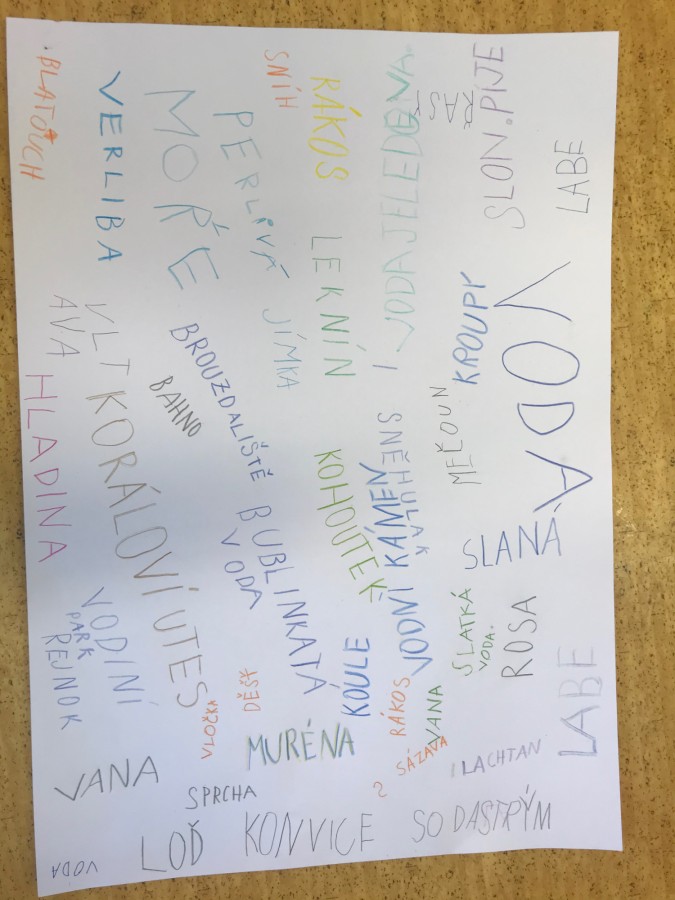 LABE
VODA
SLANÁ
LABE
SLON.PIJE
ŘASY
KROUPY
MELOUN
SLATKÁ
VODA.
ROSA
LACHTAN
VODA JE LEDOVA.
SNĚHULÁK
VODNÍ KÁMEN
VANA
RÁKOS
SÁZAVA
SODASTRÝM
RÁKOS
LEKNÍN
KOHOUTEK
KOULE
SNÍH
PERLIVÁ
JÍMKA
BUBLINKATÁ
VODA
DĚŠŤ
MURÉNA
KONVICE
MOŘE
BROUZDALIŠTĚ
BAHNO
VLOČKA
SPRCHA
LOĎ
VERLIBA
VLTAVA
KORÁLOVÍ UTES
BLATOUCH
HLADINA
VODINÍ
PARK
REJNOK
VANA
VODA